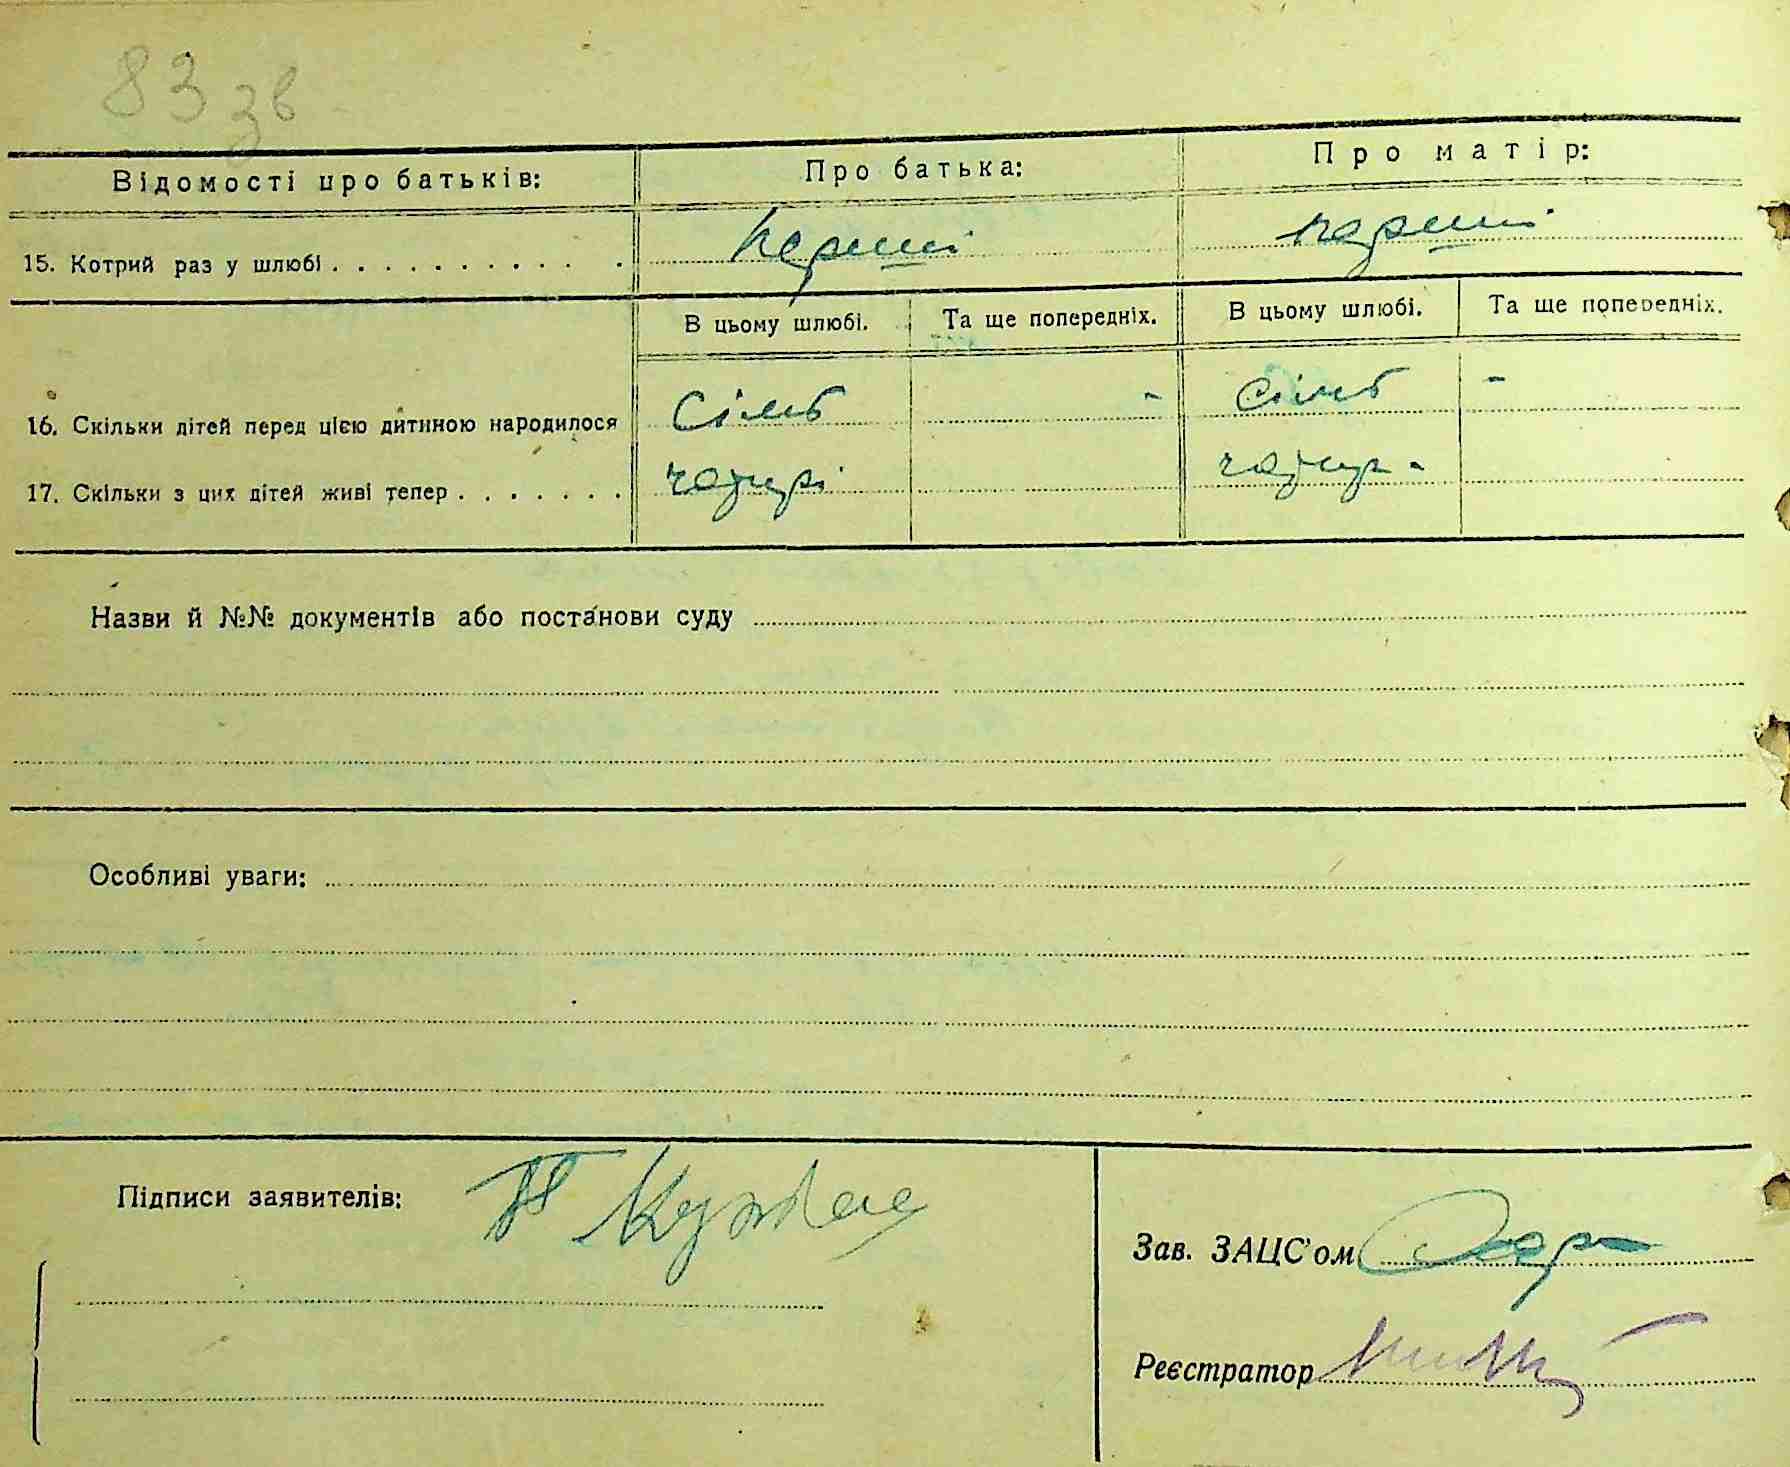 83 зв
Відомості про батьків: Про батька: Про матір:
15. Котрий раз у шлюбі . . . . . . . . . . . . перший перший
В цьому шлюбі. Та ще попередніх. В цьому шлюбі. Та ще попередніх.
16. Скільки дітей перед цією дитиною народилося сімь - сімь -
17. Скільки з цих дітей живі тепер . . . . . . . чотирі чотирі
Назви й №№ документів або постанови суду
Особливі уваги:
Підписи заявителів:
Зав. ЗАЦС'ом
Реєстратор